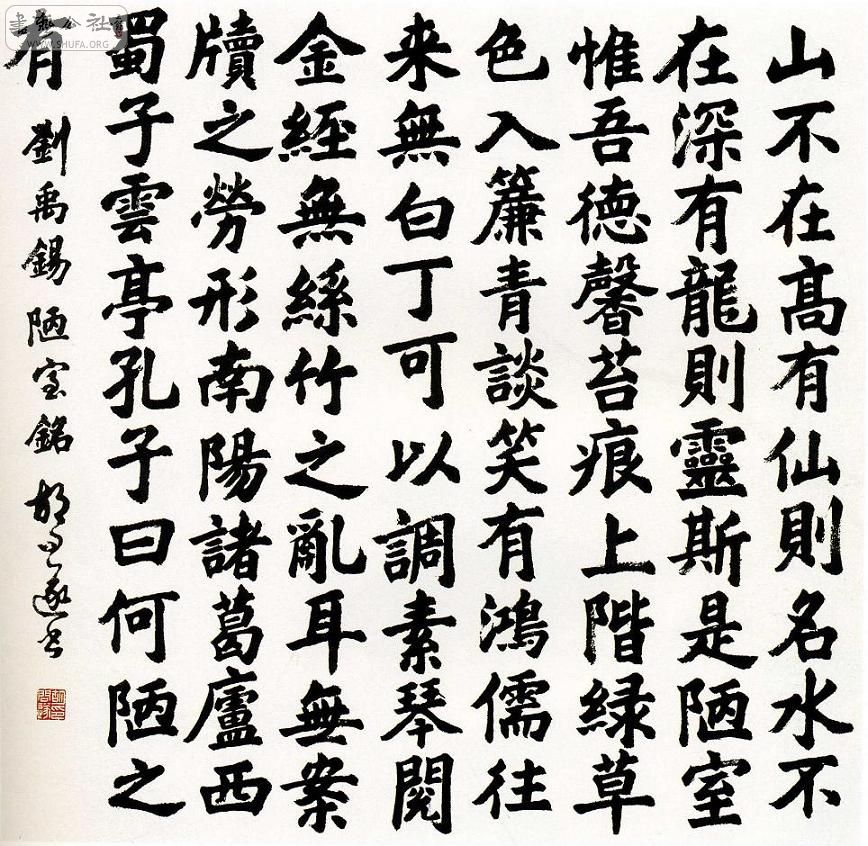 山不在髙有仙則名水不
在深有龍則靈斯是陋室
惟吾德馨苔痕上階緑草
色入簾青談笑有鴻儒往
来無白丁可以調素琴閱
金經無絲竹之亂耳無案
牘之勞形南陽諸葛廬西
蜀子雲亭孔子曰何陋之
有
劉禹錫陋室銘 胡問遂書
WWW.SHUFA.ORG